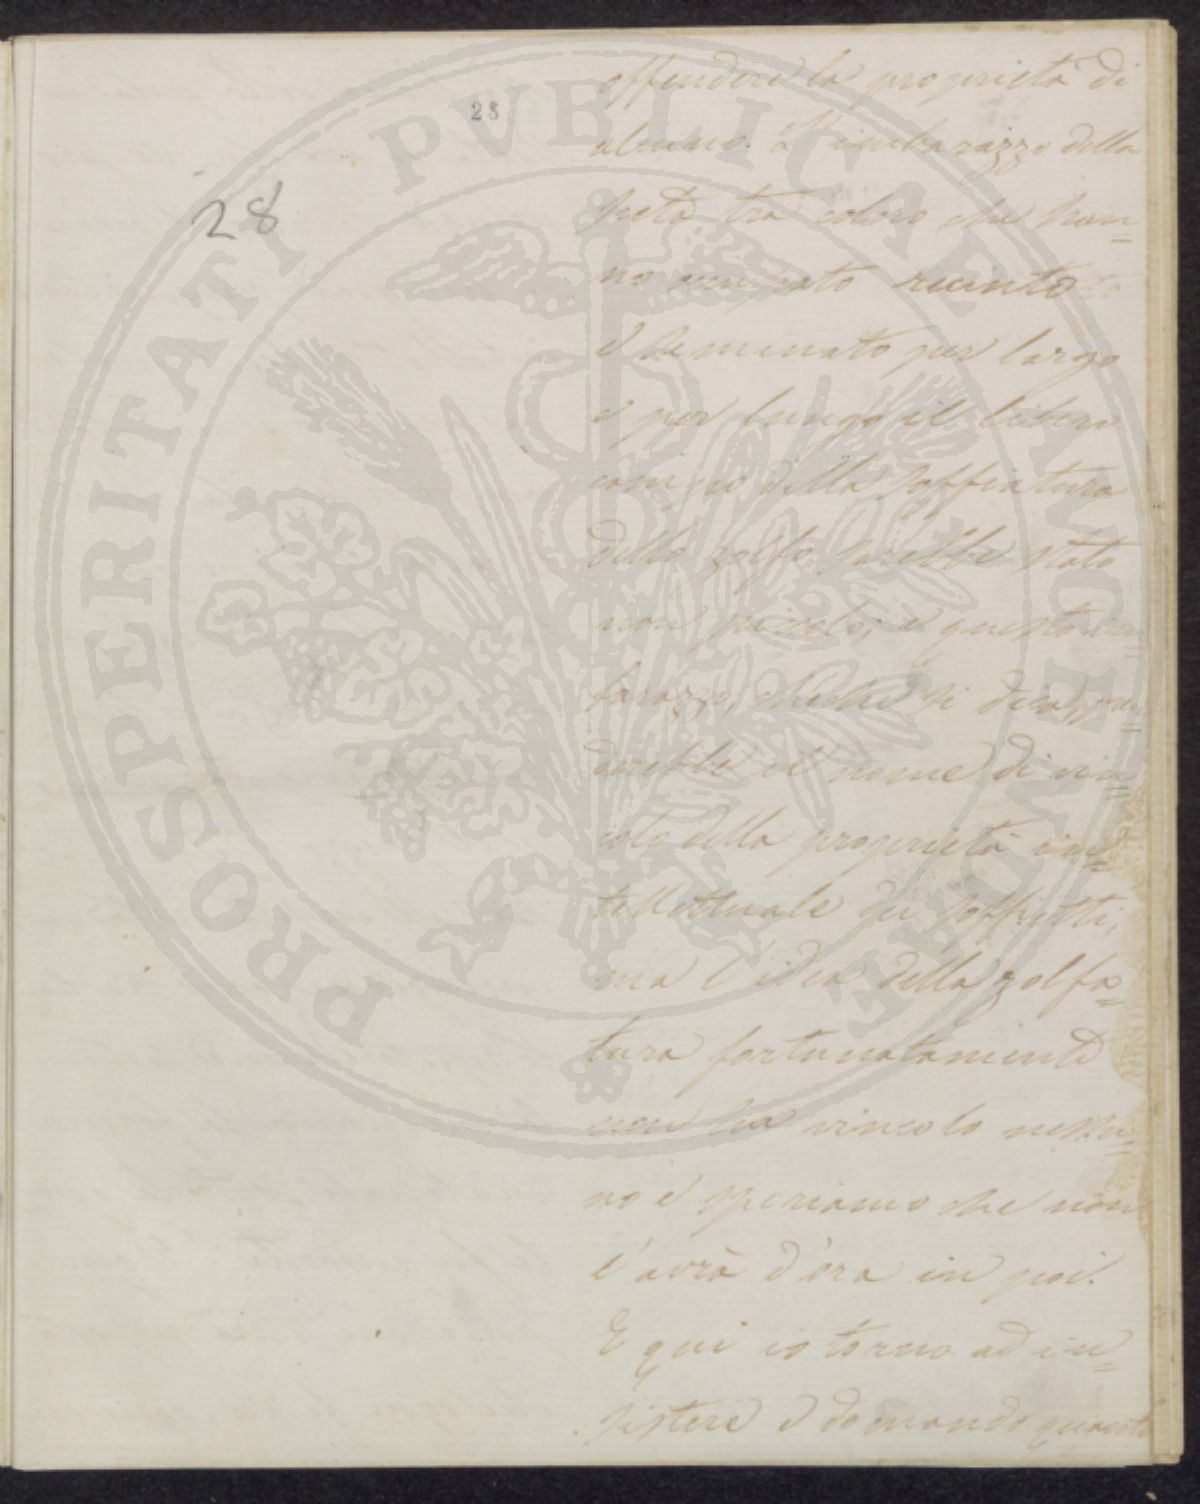 28
28
PROSPERITATI PVBLICAE AVGENDAE
offendere la proprietà di
alcuno. L'imbarazzo della
scelta tra coloro che han=
no occupato recinto
e seminato per largo
e per lungo il libero
campo della soffiatura
dello zolfo sarebbe stato
non piccolo; e questo im=
barazzo, checché si dica, pren=
derebbe il nome di vin=
colo della proprietà in=
tellettuale dei soffietti,
ma l'idea della zolfa=
tura fortunatamente
non ha vincolo nessu=
no e speriamo che non
l'avrà d'ora in poi.
E qui io torno ad in=
sistere e domando quanti